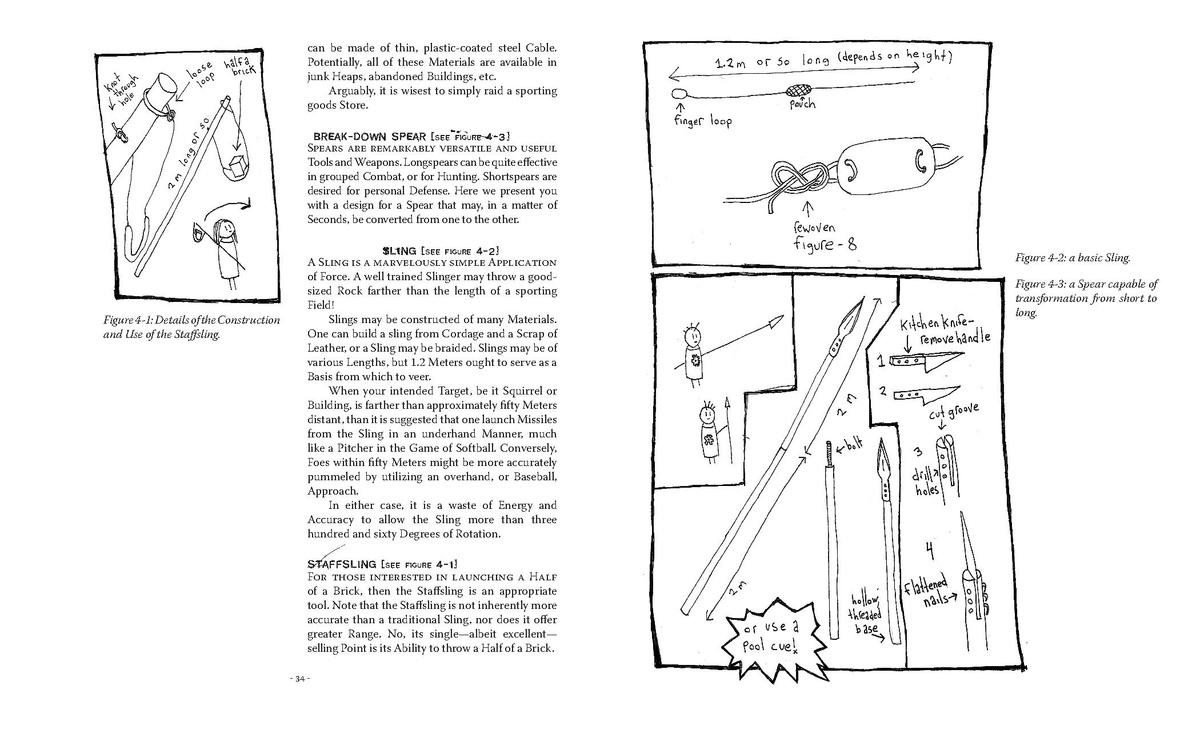 knot
through
hole
loose
loop
half a
brick
2 m long or so
Figure 4-1: Details of the Construction
and Use of the Staffsling.
can be made of thin, plastic-coated steel Cable.
Potentially, all of these Materials are available in
junk Heaps, abandoned Buildings, etc.
Arguably, it is wisest to simply raid a sporting
goods Store.
BREAK-DOWN SPEAR [SEE FIGURE 4-3]
SPEARS ARE REMARKABLY VERSATILE AND USEFUL
Tools and Weapons. Longspears can be quite effective
in grouped Combat, or for Hunting. Shortspears are
desired for personal Defense. Here we present you
with a design for a Spear that may, in a matter of
Seconds, be converted from one to the other.
SLING [SEE FIGURE 4-2]
A SLING IS A MARVELOUSLY SIMPLE APPLICATION
of Force. A well trained Slinger may throw a good-
sized Rock farther than the length of a sporting
Field!
Slings may be constructed of many Materials.
One can build a sling from Cordage and a Scrap of
Leather, or a Sling may be braided. Slings may be of
various Lengths, but 1.2 Meters ought to serve as a
Basis from which to veer.
When your intended Target, be it Squirrel or
Building, is farther than approximately fifty Meters
distant, than it is suggested that one launch Missiles
from the Sling in an underhand Manner, much
like a Pitcher in the Game of Softball. Conversely,
Foes within fifty Meters might be more accurately
pummeled by utilizing an overhand, or Baseball,
Approach.
In either case, it is a waste of Energy and
Accuracy to allow the Sling more than three
hundred and sixty Degrees of Rotation.
STAFFSLING [SEE FIGURE 4-1]
FOR THOSE INTERESTED IN LAUNCHING A HALF
of a Brick, then the Staffsling is an appropriate
tool. Note that the Staffsling is not inherently more
accurate than a traditional Sling, nor does it offer
greater Range. No, its single—albeit excellent—
selling Point is its Ability to throw a Half of a Brick.
- 34 -
1.2m or so long (depends on height)
pouch
finger loop
rewoven
figure-8
Figure 4-2: a basic Sling.
Figure 4-3: a Spear capable of
transformation from short to
long.
Kitchen Knife-
remove handle
1
2
cut groove
2 m
bolt
3
drill
holes
4
flattened
nails
2 m
hollow,
threaded
base
or use a
pool cue!